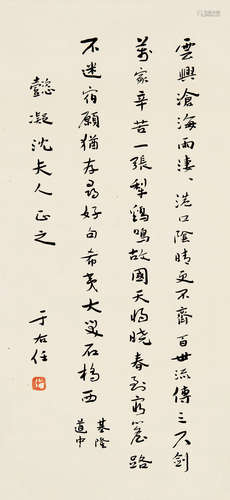 雲興滄海雨淒、港口陰晴更不齊百世流傳三尺劍
萬家辛苦一張犁鷄鳴故國天將曉春到窮簷路
不迷宿願猶存尋好句希夷大笑石橋西
基隆
道中
懿凝沈夫人正之
于右任